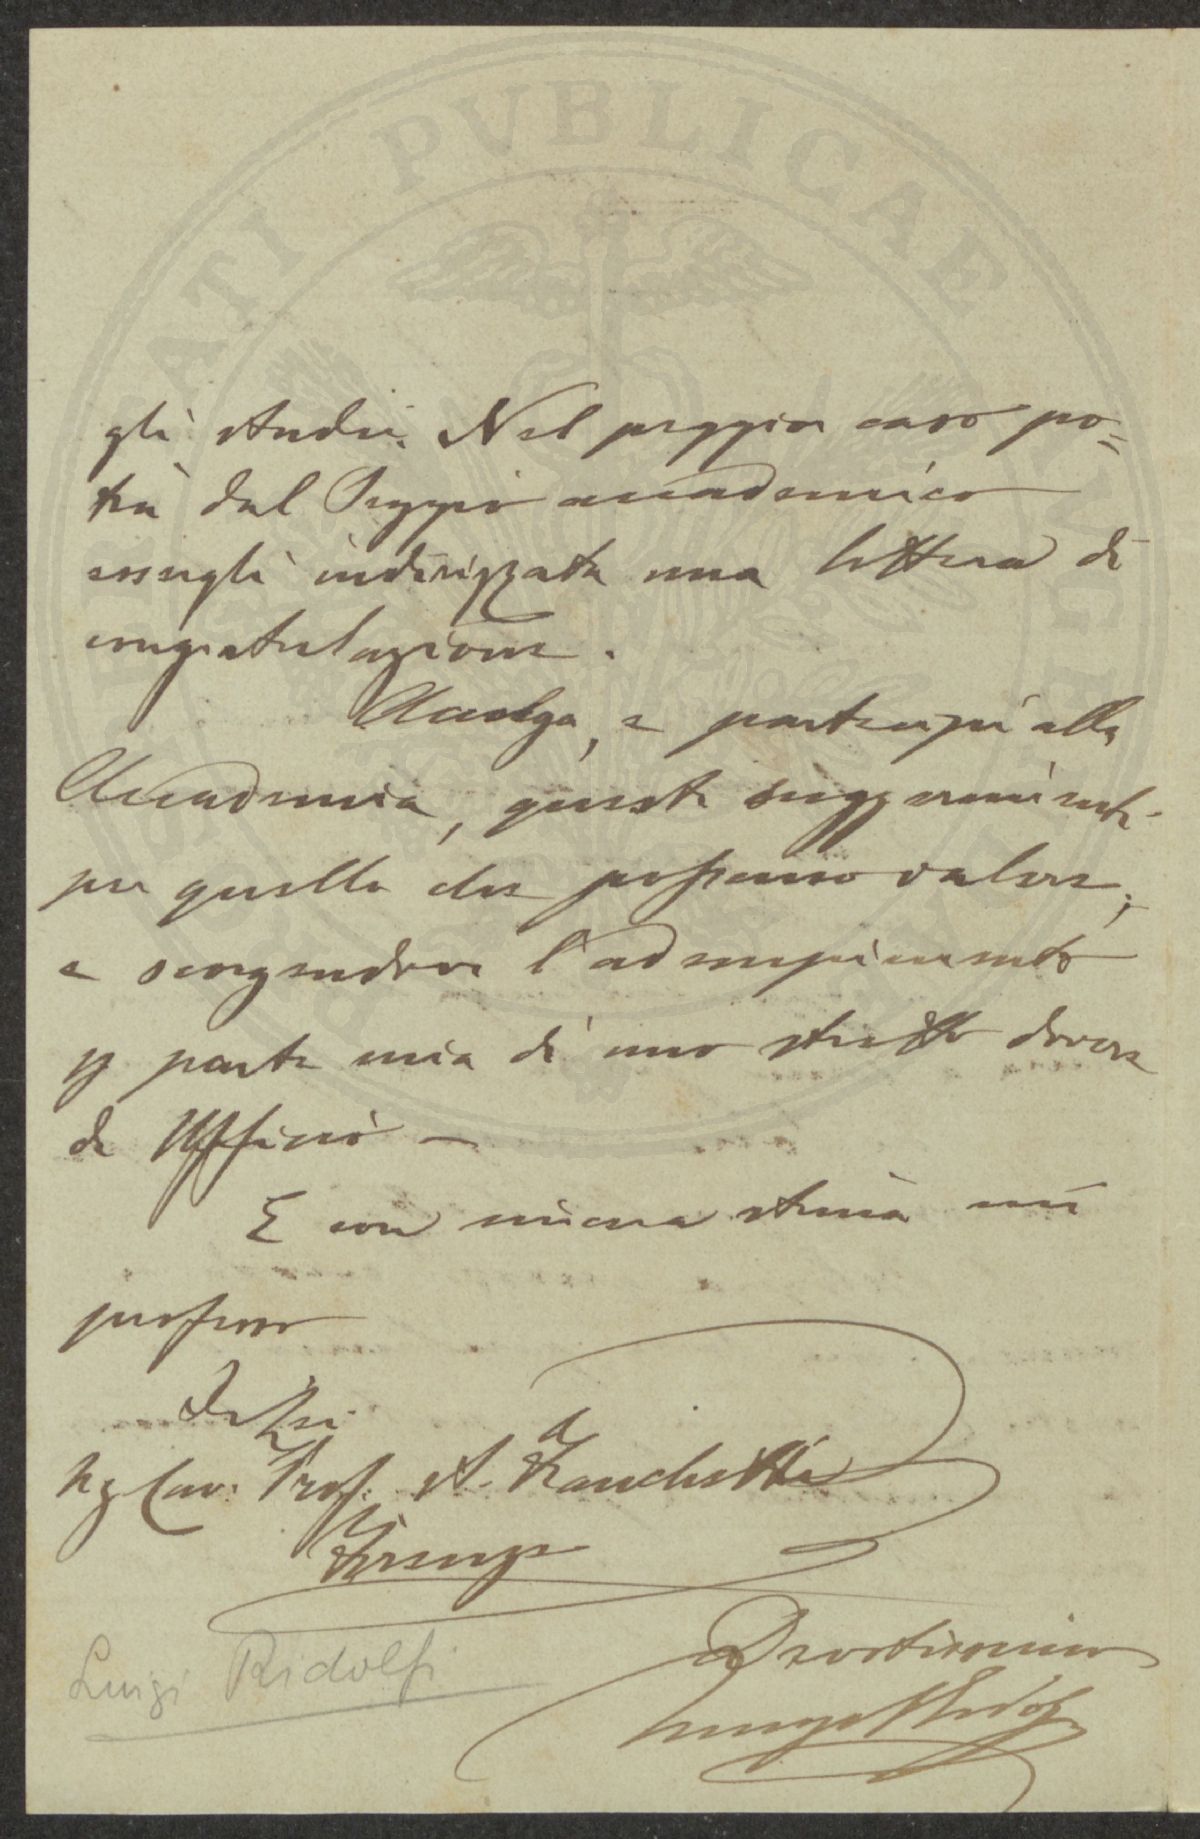 gli studii. Nel peggior caso po=
trà dal Seggio accademico
essergli indirizzata una lettera di
congratulazione.
Accolga, e partecipi alla
Accademia, questi suggerimenti
per quello che possano valere;
e scorgendovi l'adempimento
parte mia di uno stretto dovere
di Ufficio —
E con sincera stima mi
professo
Di Lei
Sig Cav. Prof. A. Franchetti
Firenze
Devotissimo
Luigi Ridolfi
Luigi Ridolfi